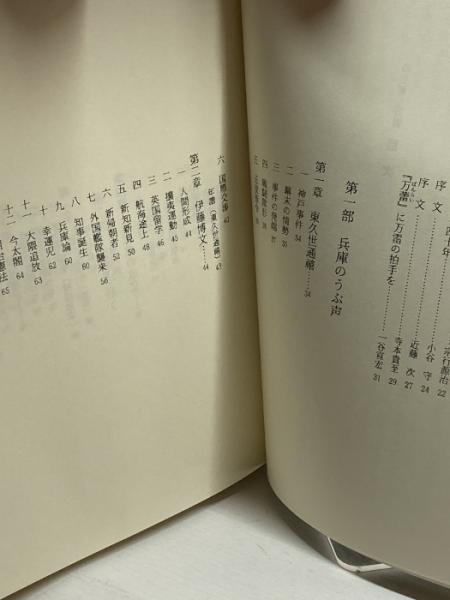 四十年……宗行源治 22
序文……小谷 守 24
序文……近藤 次 27
『万蕾』に万雷の拍手を……寺本貴至 29
一谷宣宏 31
第一部 兵庫のうぶ声
第一章 東久世通禧……34
一 神戸事件 34
二 幕末の情勢 35
三 事件の発端 37
四
五
六 国際交渉 42
年譜(東久世通禧) 43
第二章 伊藤博文……44
一 人間形成 44
二 攘夷運動 45
三 英国留学 46
四 航海途上 48
五 新知新見 50
六 新帰朝者 52
七 外国艦隊襲来 56
八 知事誕生 60
九 兵庫論 62
十 幸運児 62
十一 大隈追放 63
十二 今太閤 64
明治憲法 65